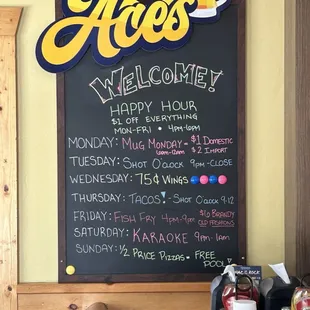 Aces
WELCOME!
HAPPY HOUR
$1 OFF EVERYTHING
MON-FRI • 4PM-6PM
MONDAY: MUG MONDAY - $1 DOMESTIC
6PM-12AM $2 IMPORT
TUESDAY: SHOT O'CLOCK 9PM-CLOSE
WEDNESDAY: 75¢ WINGS
THURSDAY: TACOS! SHOT O'CLOCK 9-12
FRIDAY: FISH FRY 4PM-9PM $6 BRANDY
OLD FASHIONS
SATURDAY: KARAOKE 9PM-1AM
SUNDAY: ½ PRICE PIZZAS - FREE
POOL